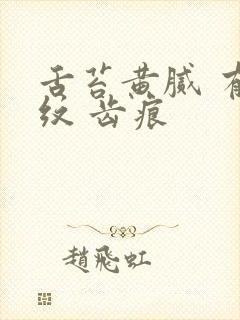 舌苔黄腻 有
纹 齿痕
趙飛虹